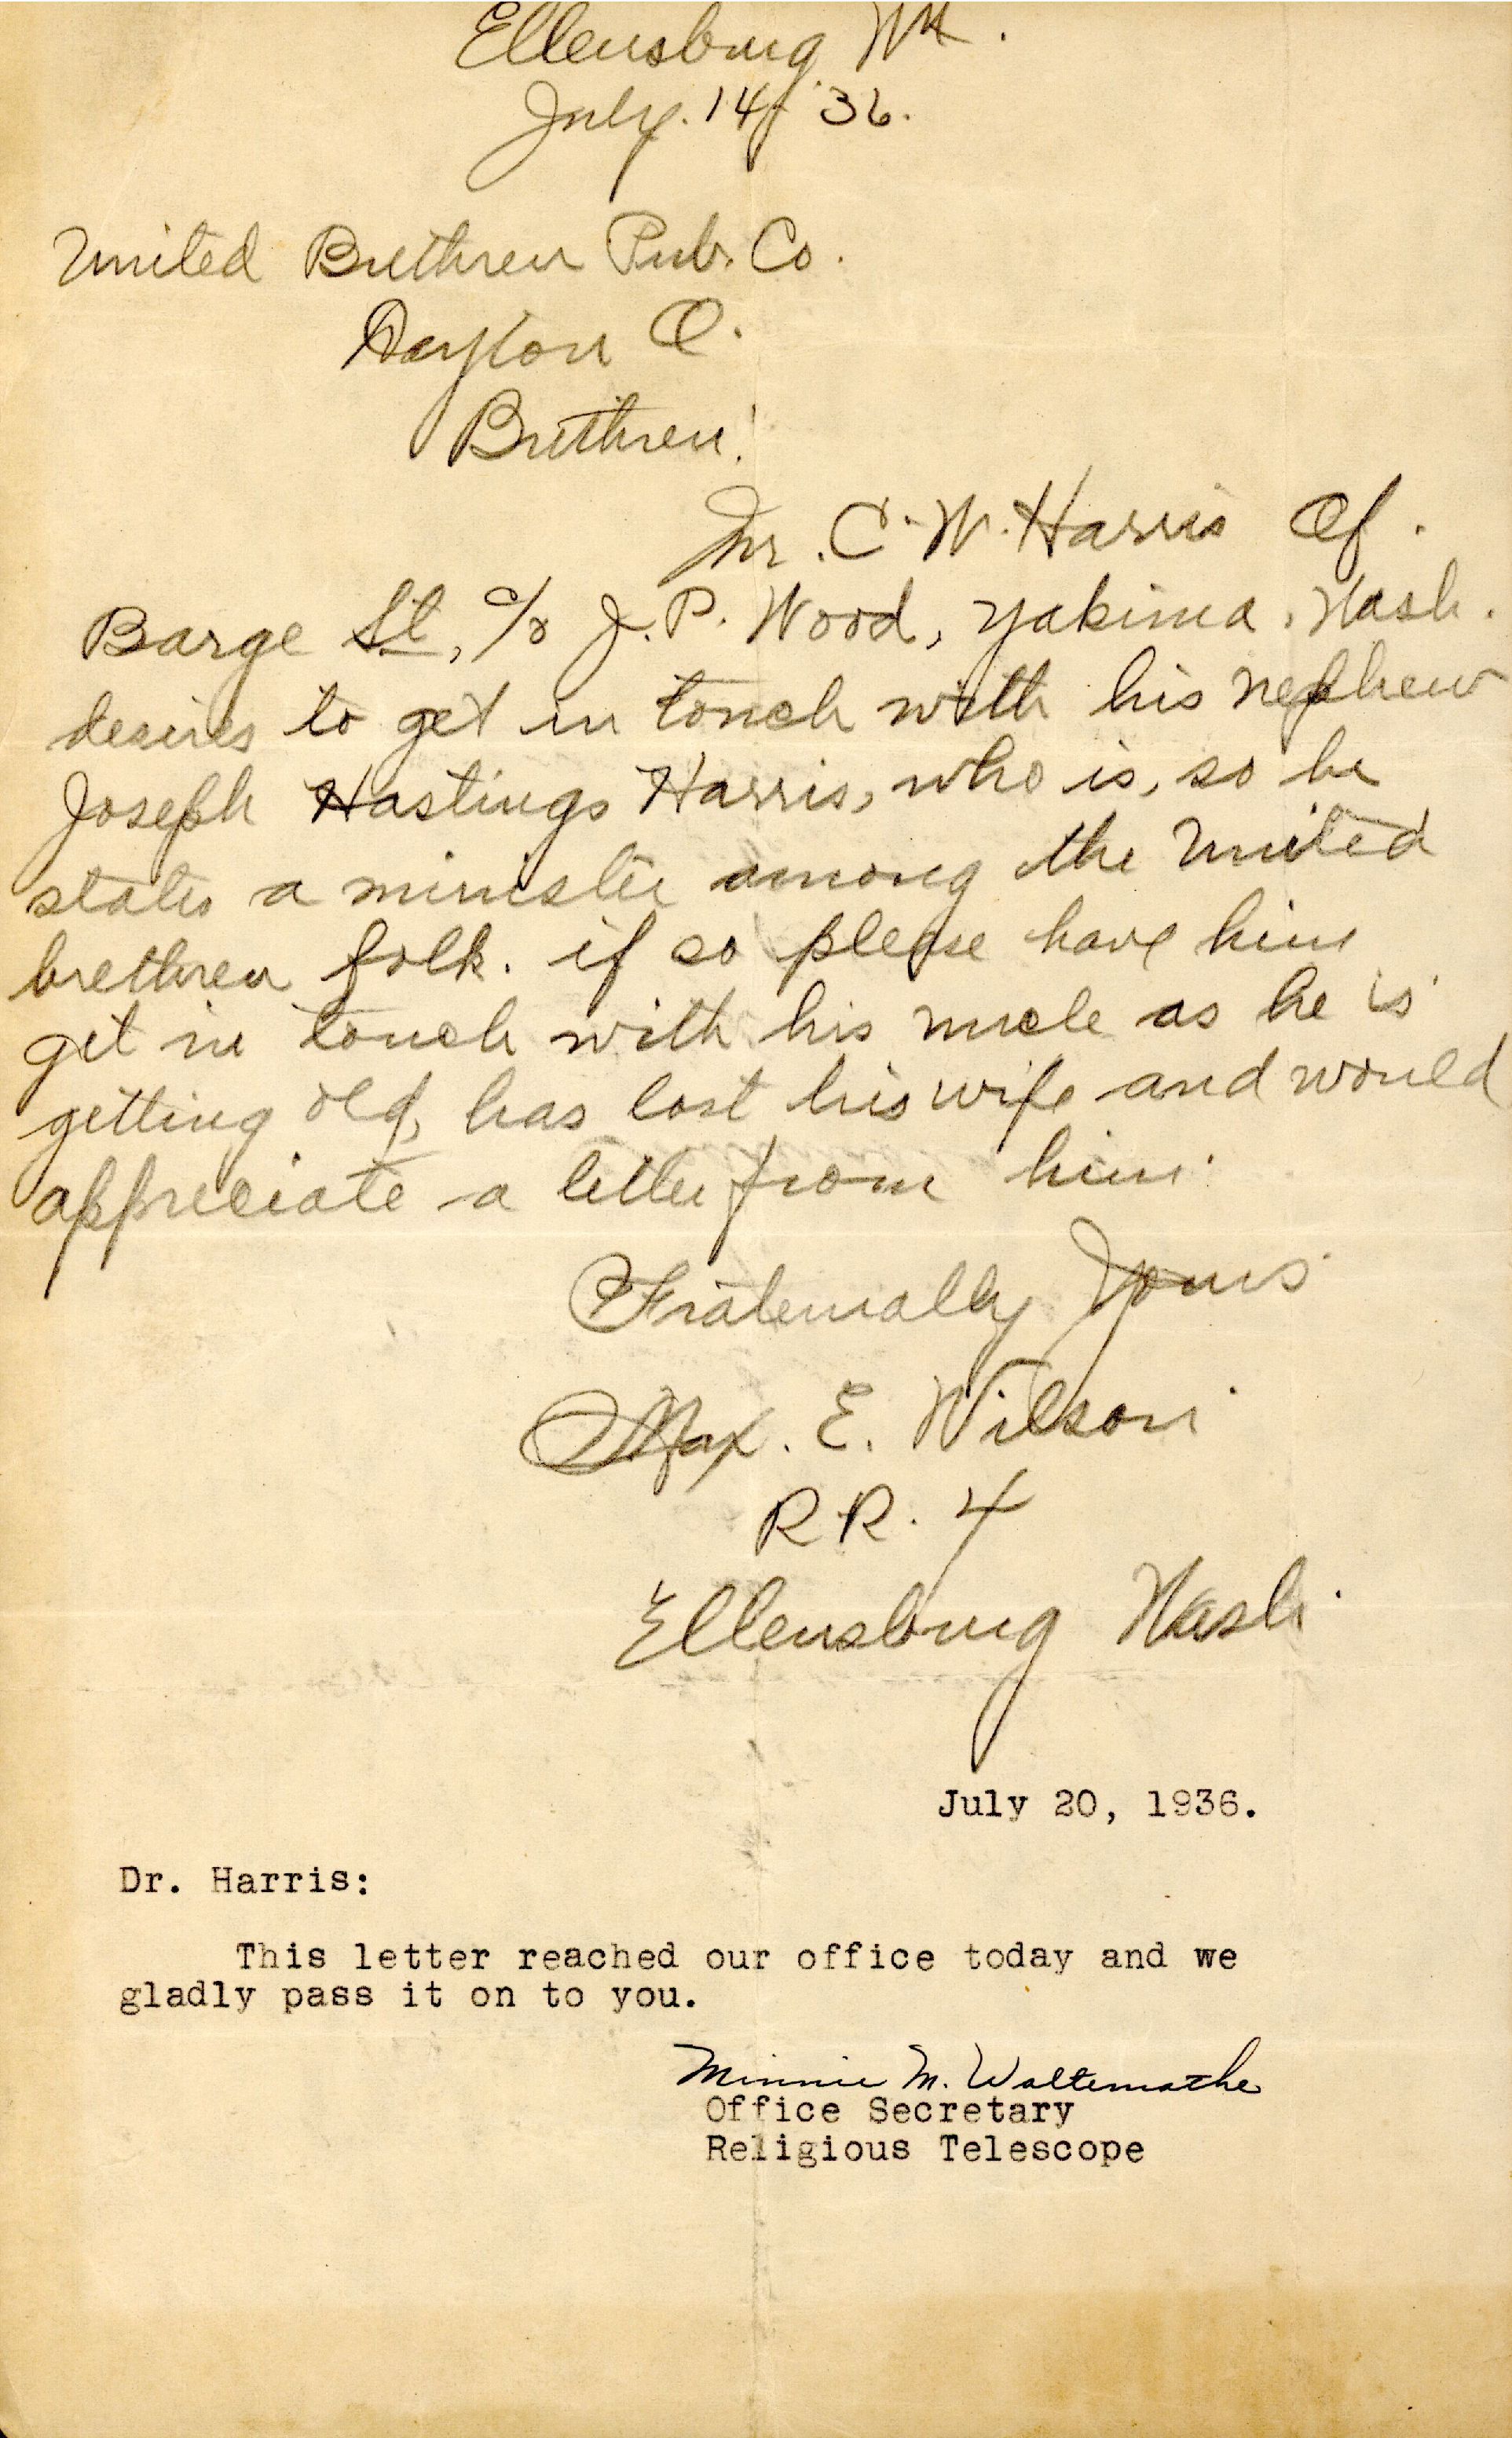 Ellensburg Wn.
July. 14/ 36.
United Brethren Pub. Co.
Dayton O.
Brethren!
Mr. C. W. Harris Of.
Barge St, c/o J. P. Wood, Yakima, Wash.
desires to get in touch with his nephew
Joseph Hastings Harris, who is, so he
states a minister among the United
brethren folk. if so please have him
get in touch with his uncle as he is
getting old, has lost his wife and would
appreciate a letter from him.
Fraternally Yours
Max. E. Wilson
R.R. 4
Ellensburg Wash.
July 20, 1936.
Dr. Harris:
This letter reached our office today and we
gladly pass it on to you.
Minnie M. Waltemathe
Office Secretary
Religious Telescope